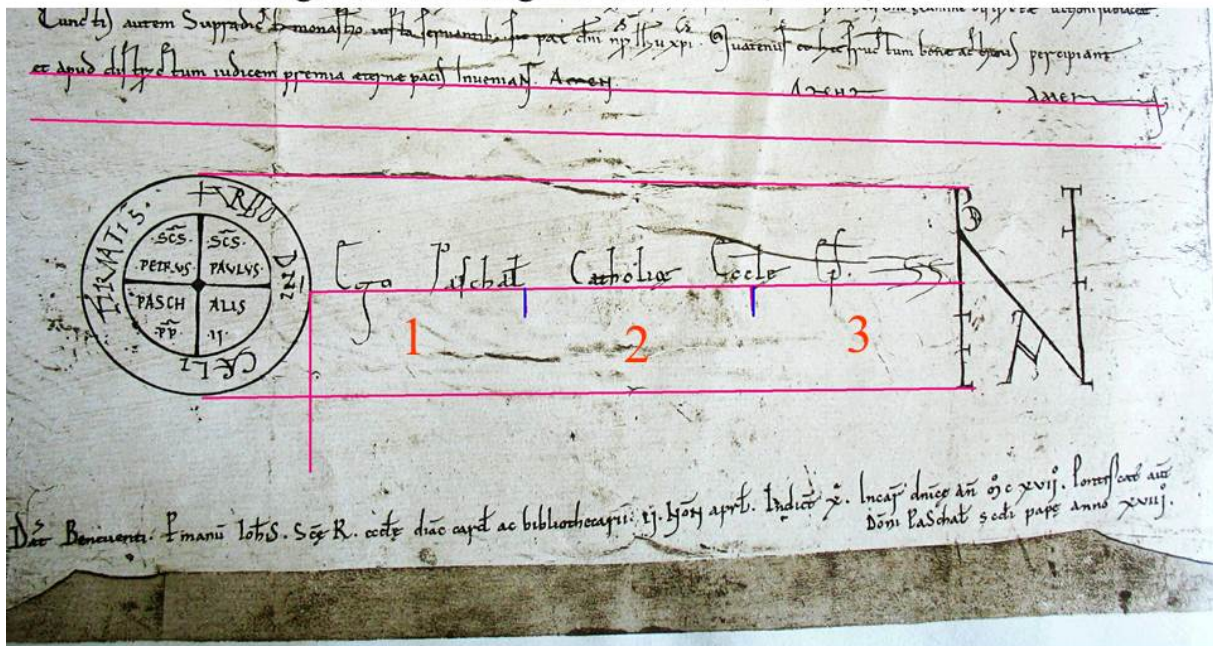 Cunctis autem Supradic̄ iusta seruantib; sit pax dn̄i nr̄i ihu xpi. Quatenus et hic fructum bone percipiant
et apud districtum iudicem premia eterne pacis Inueniant. Amen. Amen Amen
+ VERBO DNI CELI FIRMATI S.
.SC̄S. PETRVS. SC̄S. PAVLVS.
PASCH ALIS
.PP̄. .II.
Ego Paschał Catholice Eccle Ep̄s. SS
1 2 3
Dat Beneuenti. P manū Ioh̄S. Scē R. eccłe diac̄ card̄ ac bibliothecarii. ij. Noñ aprł. Indict̄ X. Incar dnice an̄ M c xvij. Pontificat aut
Dōni PaSchał secdi pape anno xviij.